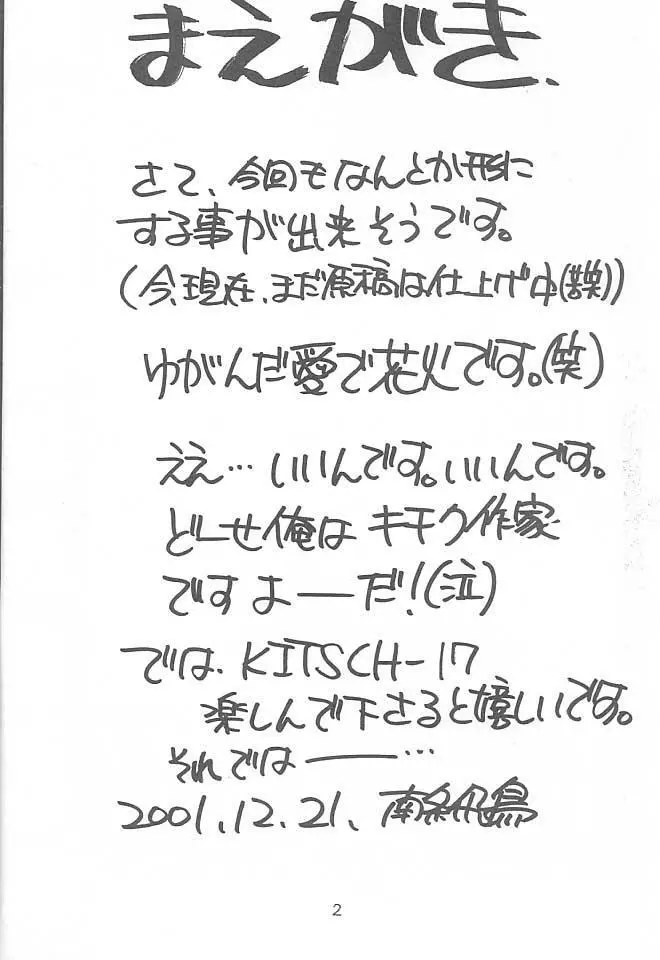 まえがき.
さて、今回もなんとか形に
する事が出来そうです。
(今、現在、まだ原稿は仕上げ中(苦笑))
ゆがんだ愛で花火です。(笑)
ええ…いいんです。いいんです。
どーせ俺はキモク作家
ですよ——だ!(泣)
では、KITSCH-17
楽しんで下さると嬉しいです。
それでは——…
2001.12.21、南条飛鳥
2